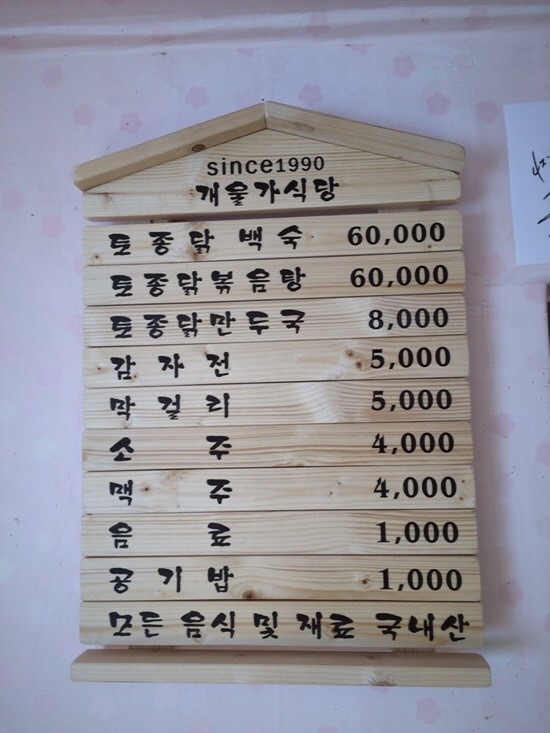 since1990
개울가식당
토종닭 백숙 60,000
토종닭볶음탕 60,000
토종닭만두국 8,000
감자전 5,000
막걸리 5,000
소주 4,000
맥주 4,000
음료 1,000
공기밥 1,000
모든 음식 및 재료 국내산